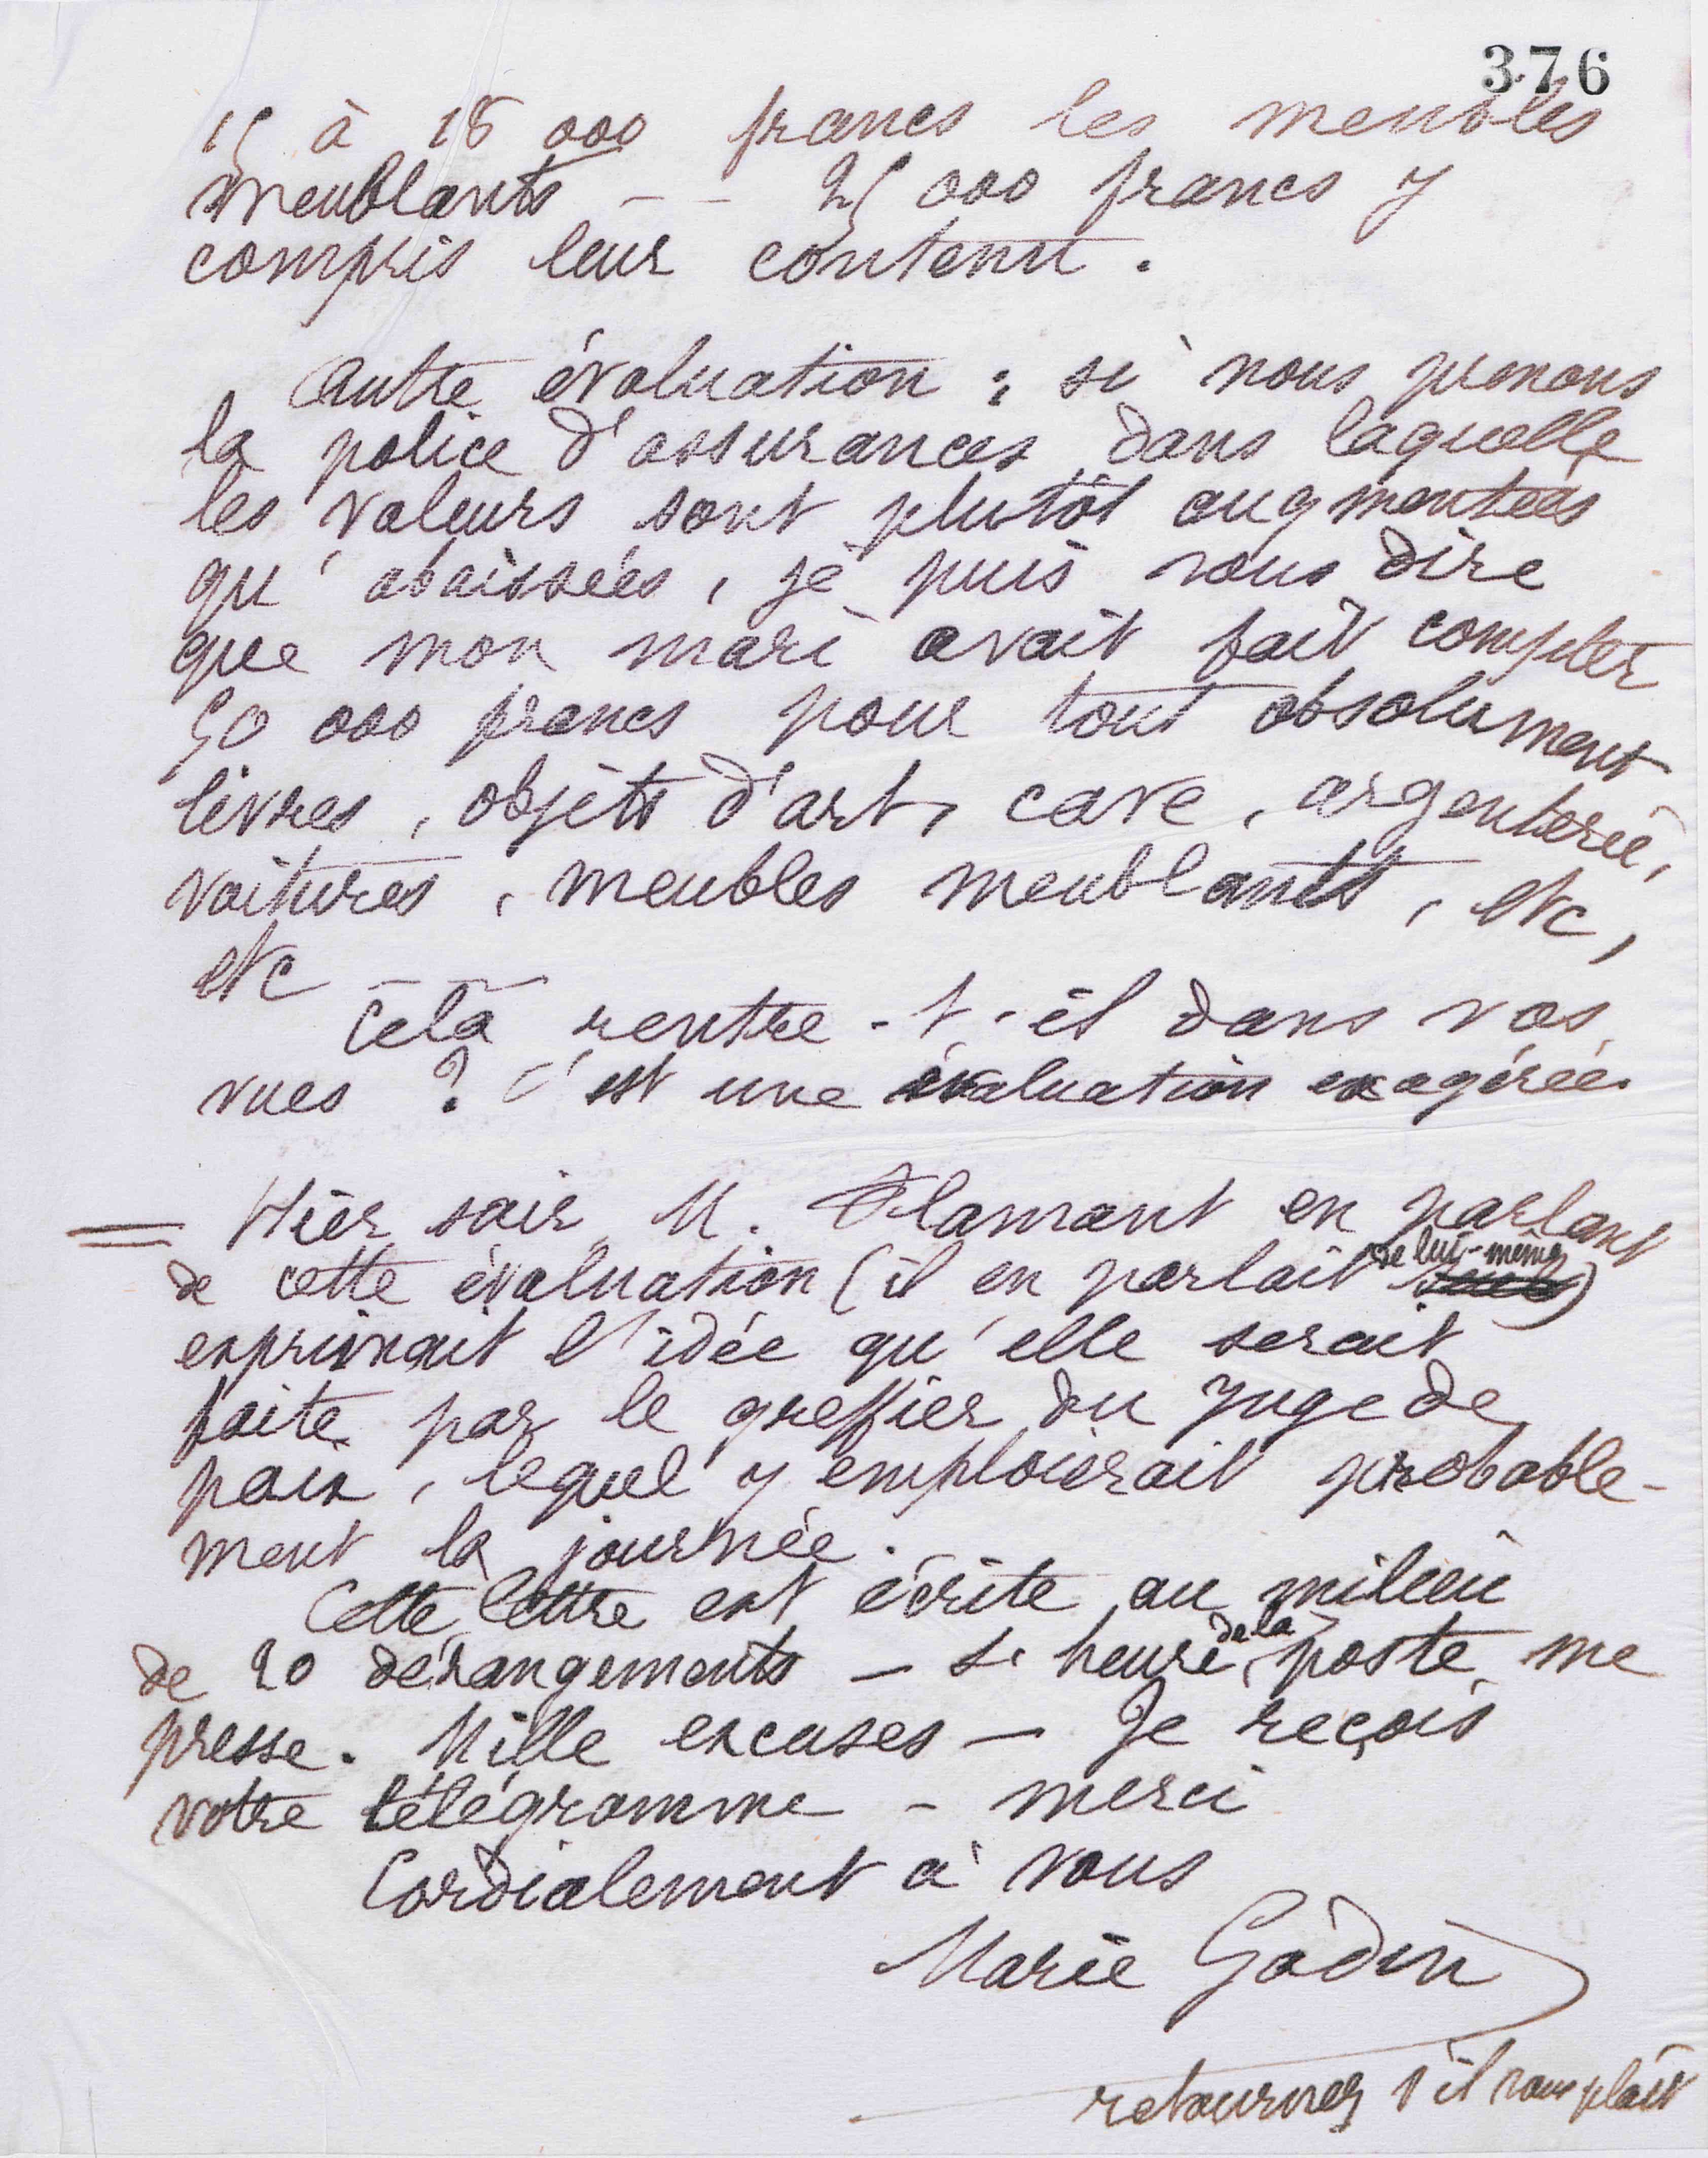 376
15 à 18 000 francs les meubles
meublants - - 25 000 francs y
compris leur contenu.
Autre évaluation : si nous prenons
la police d'assurances dans laquelle
les valeurs sont plutôt augmentées
qu'abaissées, je puis vous dire
que mon mari avait fait compter
50 000 francs pour tout absolument
livres, objets d'art, cave, argenterie,
voitures, meubles meublants, etc,
etc - -
Cela rentre-t-il dans vos
vues ? C'est une évaluation exagérée.
= Hier soir M. Flamant en parlant
de cette évaluation (il en parlait de lui-même)
exprimait l'idée qu'elle serait
faite par le greffier du Juge de
paix, lequel y emploierait probable-
ment la journée.
Cette lettre est écrite au milieu
de 20 dérangements - L'heure de la poste me
presse. Mille excuses - Je reçois
votre télégramme - merci
Cordialement à vous
Marie Godin
retournez s'il vous plaît